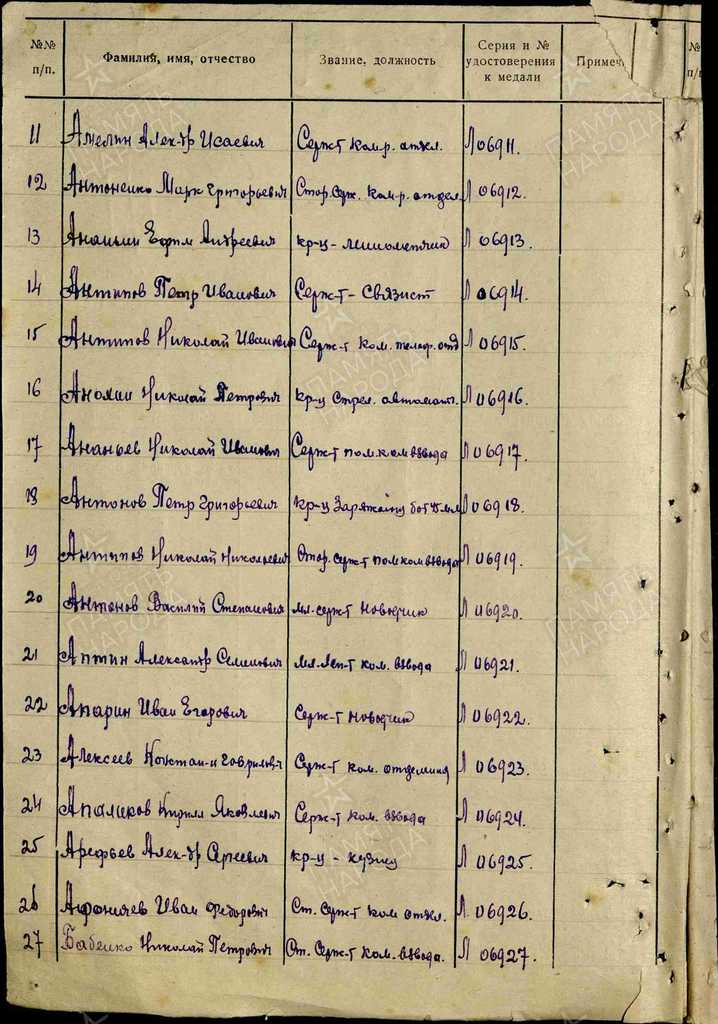 №№ п/п. Фамилия, имя, отчество Звание, должность Серия и № удостоверения к медали Примеч
№ п/п
11 Амелин Алек-др Исаевич Серж-т ком-р. отдел. Л 06911.
12 Антоненко Марк Григорьевич Стар. серж. ком-р. отдел. Л 06912.
13 Ананьин Ефим Андреевич кр-ц - миномётчик Л 06913.
14 Антипов Петр Иванович Серж-т - связист Л 06914.
15 Антипов Николай Иванович Серж-т ком. телеф. отд Л 06915.
16 Николай Петрович кр-ц стрел. автомат. Л 06916.
17 Ананьев Николай Иванович Серж-т пом. ком взвода Л 06917.
18 Антонов Петр Григорьевич кр-ц Л 06918.
19 Антипов Николай Николаевич Стар. серж-т пом ком взвода Л 06919.
20 Антонов Василий Степанович мл. серж-т наводчик Л 06920.
21 Аптин Александр Семенович мл. леп-т ком. взвода Л 06921.
22 Апарин Иван Егорович Серж-т наводчик Л 06922.
23 Алексеев Констан-н Гаврилович Серж-т ком. отделения Л 06923.
24 Апаликов Кирилл Яковлевич Серж-т ком. взвода Л 06924.
25 Арефьев Алек-др Сергеевич кр-ц - кузнец Л 06925.
26 Иван Федорович Ст. серж-т ком отдел. Л 06926.
27 Бабенко Николай Петрович Ст. серж-т ком. взвода. Л 06927.
ПАМЯТЬ НАРОДА
ПАМЯТЬ НАРОДА
ПАМЯТЬ НАРОДА
ПАМЯТЬ НАРОДА
ПАМЯТЬ НАРОДА
ПАМЯТЬ НАРОДА